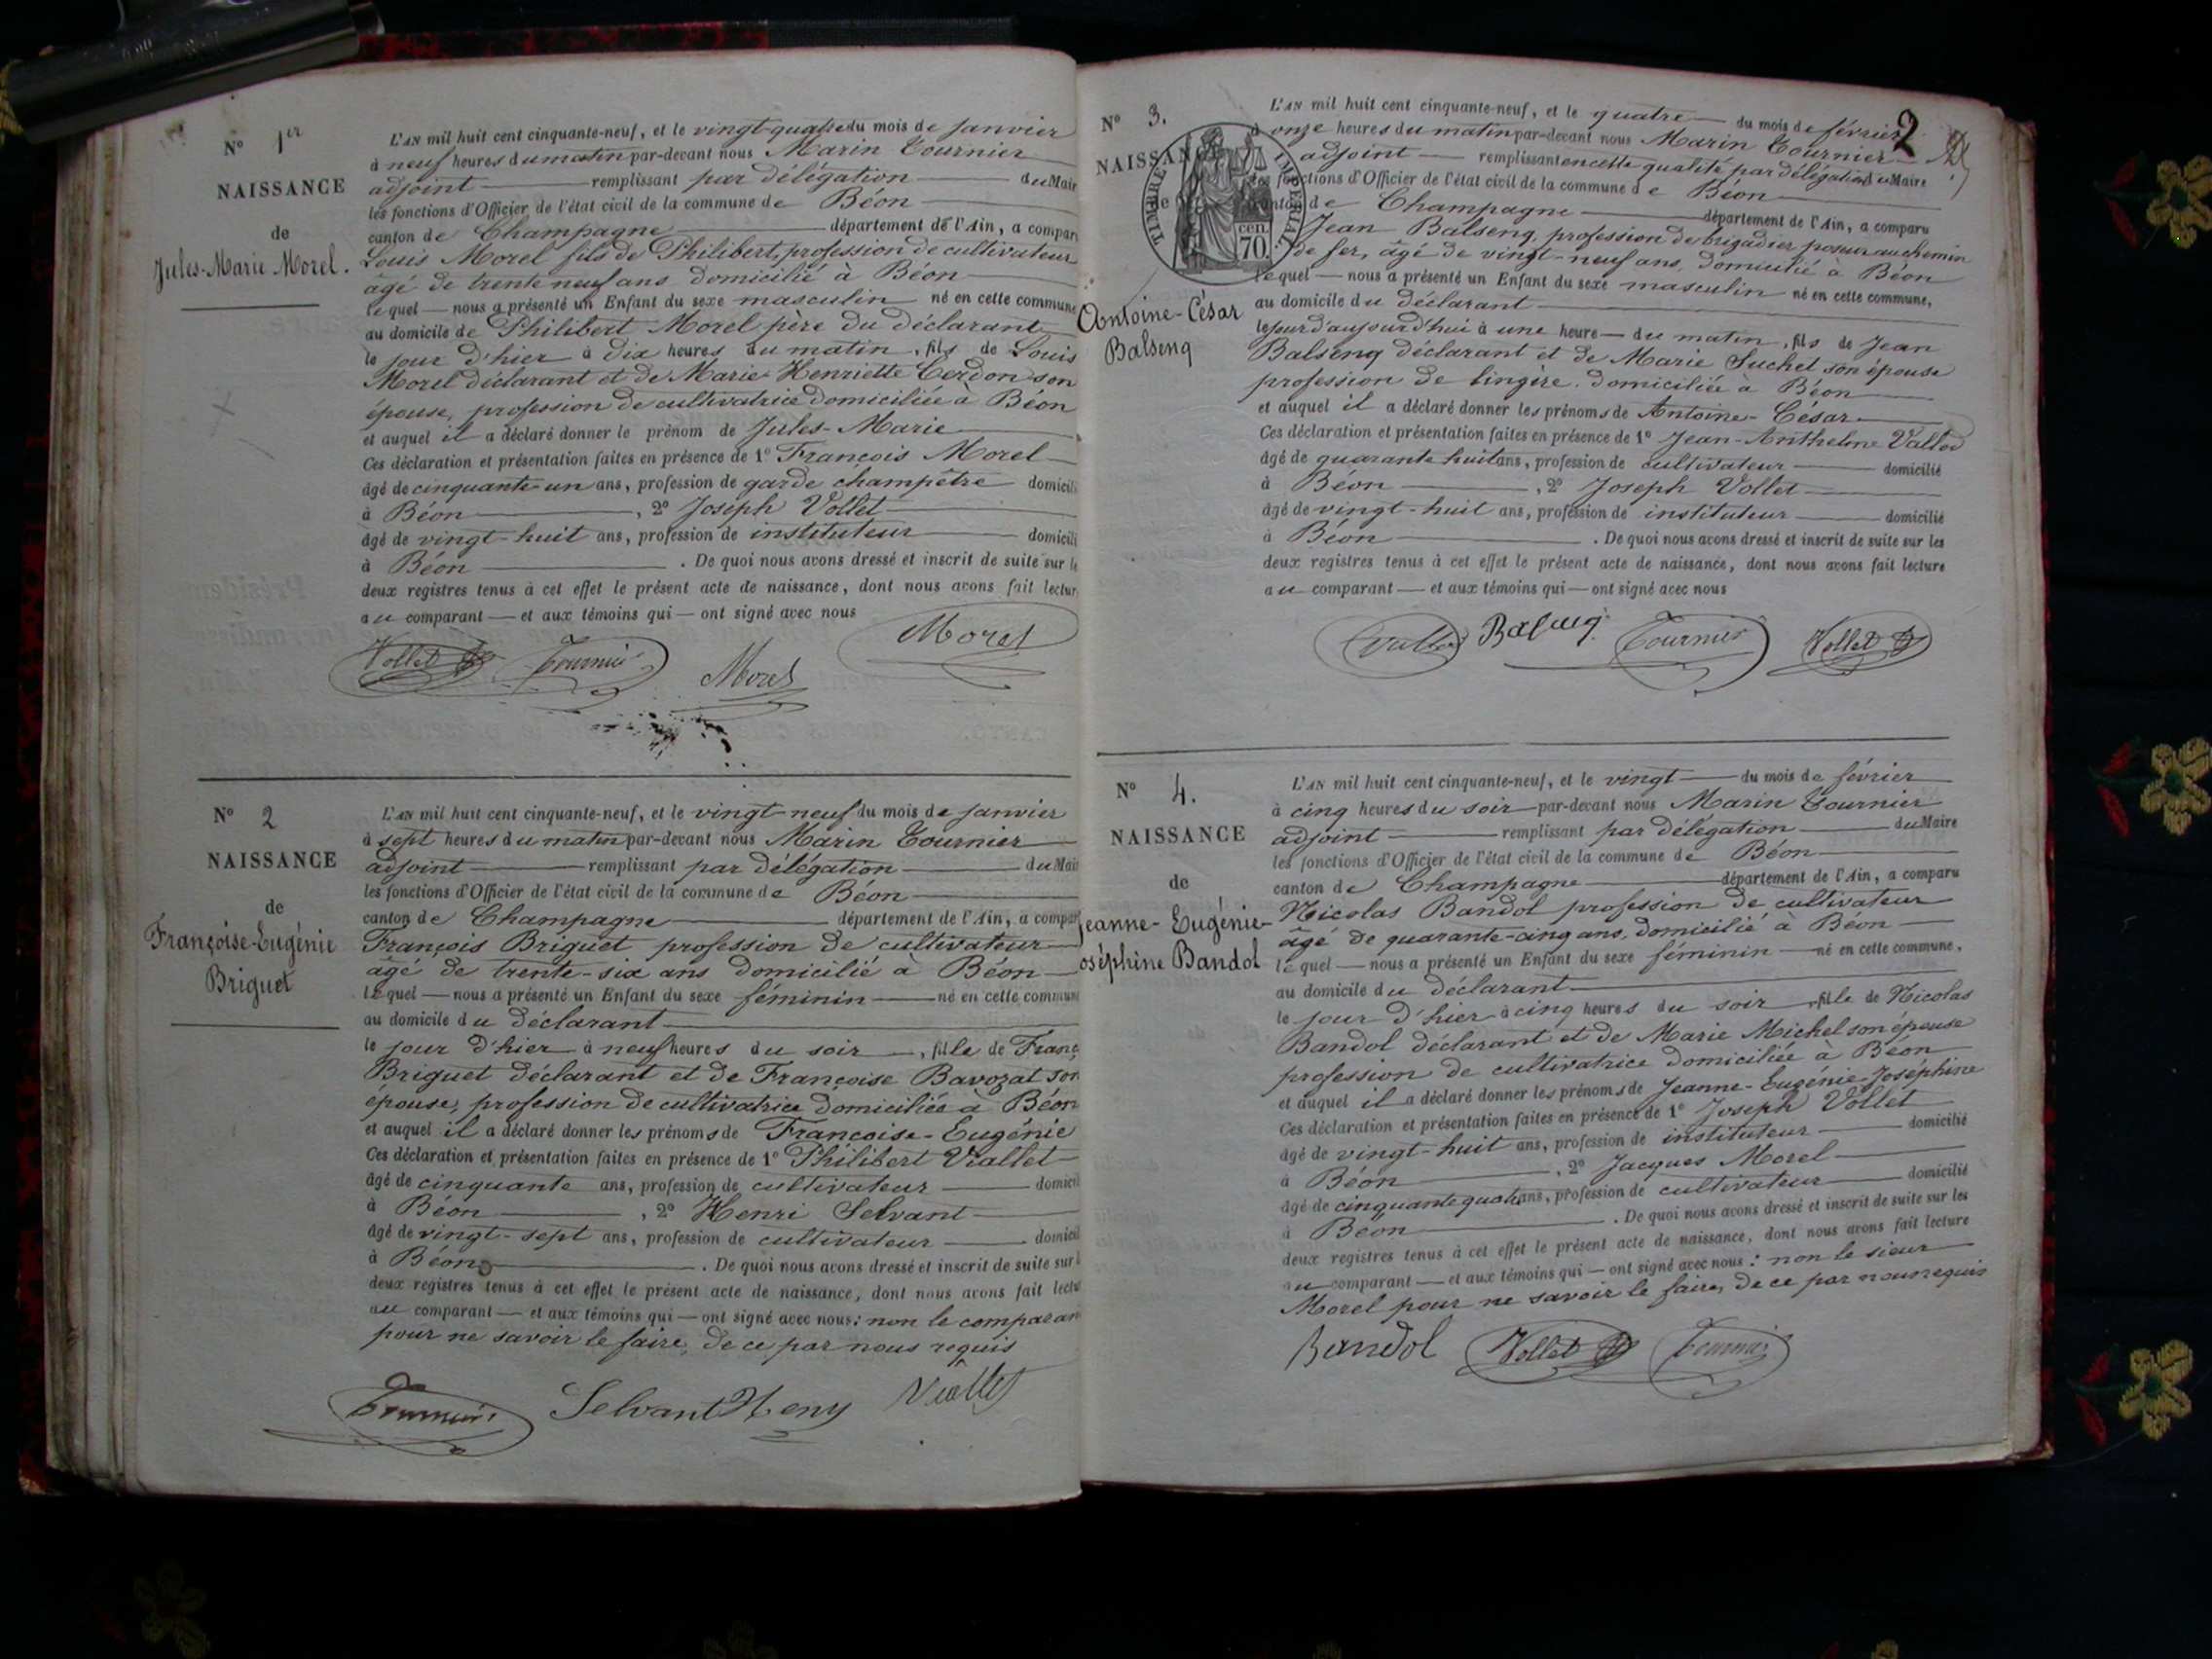 N° 1er
NAISSANCE
de
Jules-Marie Morel.
L'AN mil huit cent cinquante-neuf, et le vingt-quatre du mois de janvier
à neuf heures du matin par-devant nous Marin Tournier
adjoint remplissant par délégation du Mair
les fonctions d'Officier de l'état civil de la commune de Béon
canton de Champagne département de l'Ain, a compar
Louis Morel fils de Philibert, profession de cultivateur
âgé de trente neuf ans domicilié à Béon
lequel nous a présenté un Enfant du sexe masculin né en cette commune
au domicile de Philibert Morel père du déclarant
le jour d'hier à dix heures du matin, fils de Louis
Morel déclarant et de Marie Henriette Cerdon son
épouse, profession de cultivatrice domiciliée à Béon
et auquel il a déclaré donner le prénom de Jules-Marie
Ces déclaration et présentation faites en présence de 1° François Morel
âgé de cinquante-un ans, profession de garde champêtre domicili
à Béon, 2° Joseph Vollet
âgé de vingt-huit ans, profession de instituteur domicili
à Béon. De quoi nous avons dressé et inscrit de suite sur le
deux registres tenus à cet effet le présent acte de naissance, dont nous avons fait lectur
au comparant et aux témoins qui ont signé avec nous
Morel
Vollet Tournier Morel
N° 2
NAISSANCE
de
Françoise-Eugénie
Briguet
L'AN mil huit cent cinquante-neuf, et le vingt-neuf du mois de janvier
à sept heures du matin par-devant nous Marin Tournier
adjoint remplissant par délégation du Mair
les fonctions d'Officier de l'état civil de la commune de Béon
canton de Champagne département de l'Ain, a compar
François Briguet profession de cultivateur
âgé de trente-six ans domicilié à Béon
lequel nous a présenté un Enfant du sexe féminin né en cette commune
au domicile du déclarant
le jour d'hier à neuf heures du soir, fille de Franç
Briguet déclarant et de Françoise Bavozat son
épouse, profession de cultivatrice domiciliée à Béon
et auquel il a déclaré donner les prénoms de Françoise-Eugénie
Ces déclaration et présentation faites en présence de 1° Philibert Viallet
âgé de cinquante ans, profession de cultivateur domicil
à Béon, 2° Henri Selvant
âgé de vingt-sept ans, profession de cultivateur domicil
à Béon. De quoi nous avons dressé et inscrit de suite sur l
deux registres tenus à cet effet le présent acte de naissance, dont nous avons fait lectu
au comparant et aux témoins qui ont signé avec nous: non le comparan
pour ne savoir le faire, de ce par nous requis
Tournier Selvant Heny Viallet
2
N° 3.
NAISSAN
de
TIMBRE IMPERIAL
cen.
70.
Antoine-César
Balseng
L'AN mil huit cent cinquante-neuf, et le quatre du mois de février
à onze heures du matin par-devant nous Marin Tournier
adjoint remplissant en cette qualité par délégation du Maire
les fonctions d'Officier de l'état civil de la commune de Béon
canton de Champagne département de l'Ain, a comparu
Jean Balseng, profession de brigadier poseur au chemin
de fer, âgé de vingt-neuf ans, domicilié à Béon
lequel nous a présenté un Enfant du sexe masculin né en cette commune,
au domicile du déclarant
le jour d'aujourd'hui à une heure du matin, fils de Jean
Balseng déclarant et de Marie Suchet son épouse
profession de lingère. domiciliée à Béon
et auquel il a déclaré donner les prénoms de Antoine-César
Ces déclaration et présentation faites en présence de 1° Jean-Anthelme Vallod
âgé de quarante huit ans, profession de cultivateur domicilié
à Béon, 2° Joseph Vollet
âgé de vingt-huit ans, profession de instituteur domicilié
à Béon. De quoi nous avons dressé et inscrit de suite sur les
deux registres tenus à cet effet le présent acte de naissance, dont nous avons fait lecture
au comparant et aux témoins qui ont signé avec nous
Vallod Balseng Tournier Vollet
N° 4.
NAISSANCE
de
Jeanne-Eugénie-
oséphine Bandol
L'AN mil huit cent cinquante-neuf, et le vingt du mois de février
à cinq heures du soir par-devant nous Marin Tournier
adjoint remplissant par délégation du Maire
les fonctions d'Officier de l'état civil de la commune de Béon
canton de Champagne département de l'Ain, a comparu
Nicolas Bandol profession de cultivateur
âgé de quarante-cinq ans, domicilié à Béon
lequel nous a présenté un Enfant du sexe féminin né en cette commune,
au domicile du déclarant
le jour d'hier à cinq heures du soir, fille de Nicolas
Bandol déclarant et de Marie Michel son épouse
profession de cultivatrice domiciliée à Béon
et auquel il a déclaré donner les prénoms de Jeanne-Eugénie-Joséphine
Ces déclaration et présentation faites en présence de 1° Joseph Vollet
âgé de vingt-huit ans, profession de instituteur domicilié
à Béon, 2° Jacques Morel
âgé de cinquante quatre ans, profession de cultivateur domicilié
à Béon. De quoi nous avons dressé et inscrit de suite sur les
deux registres tenus à cet effet le présent acte de naissance, dont nous avons fait lecture
au comparant et aux témoins qui ont signé avec nous: non le sieur
Morel pour ne savoir le faire, de ce par nous requis
Bandol Vollet Tournier